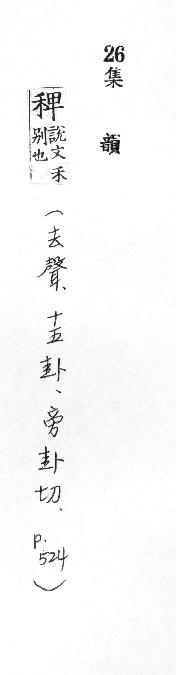 26
集韻
稗說文禾別也(去聲、十五卦、旁卦切、p.524)